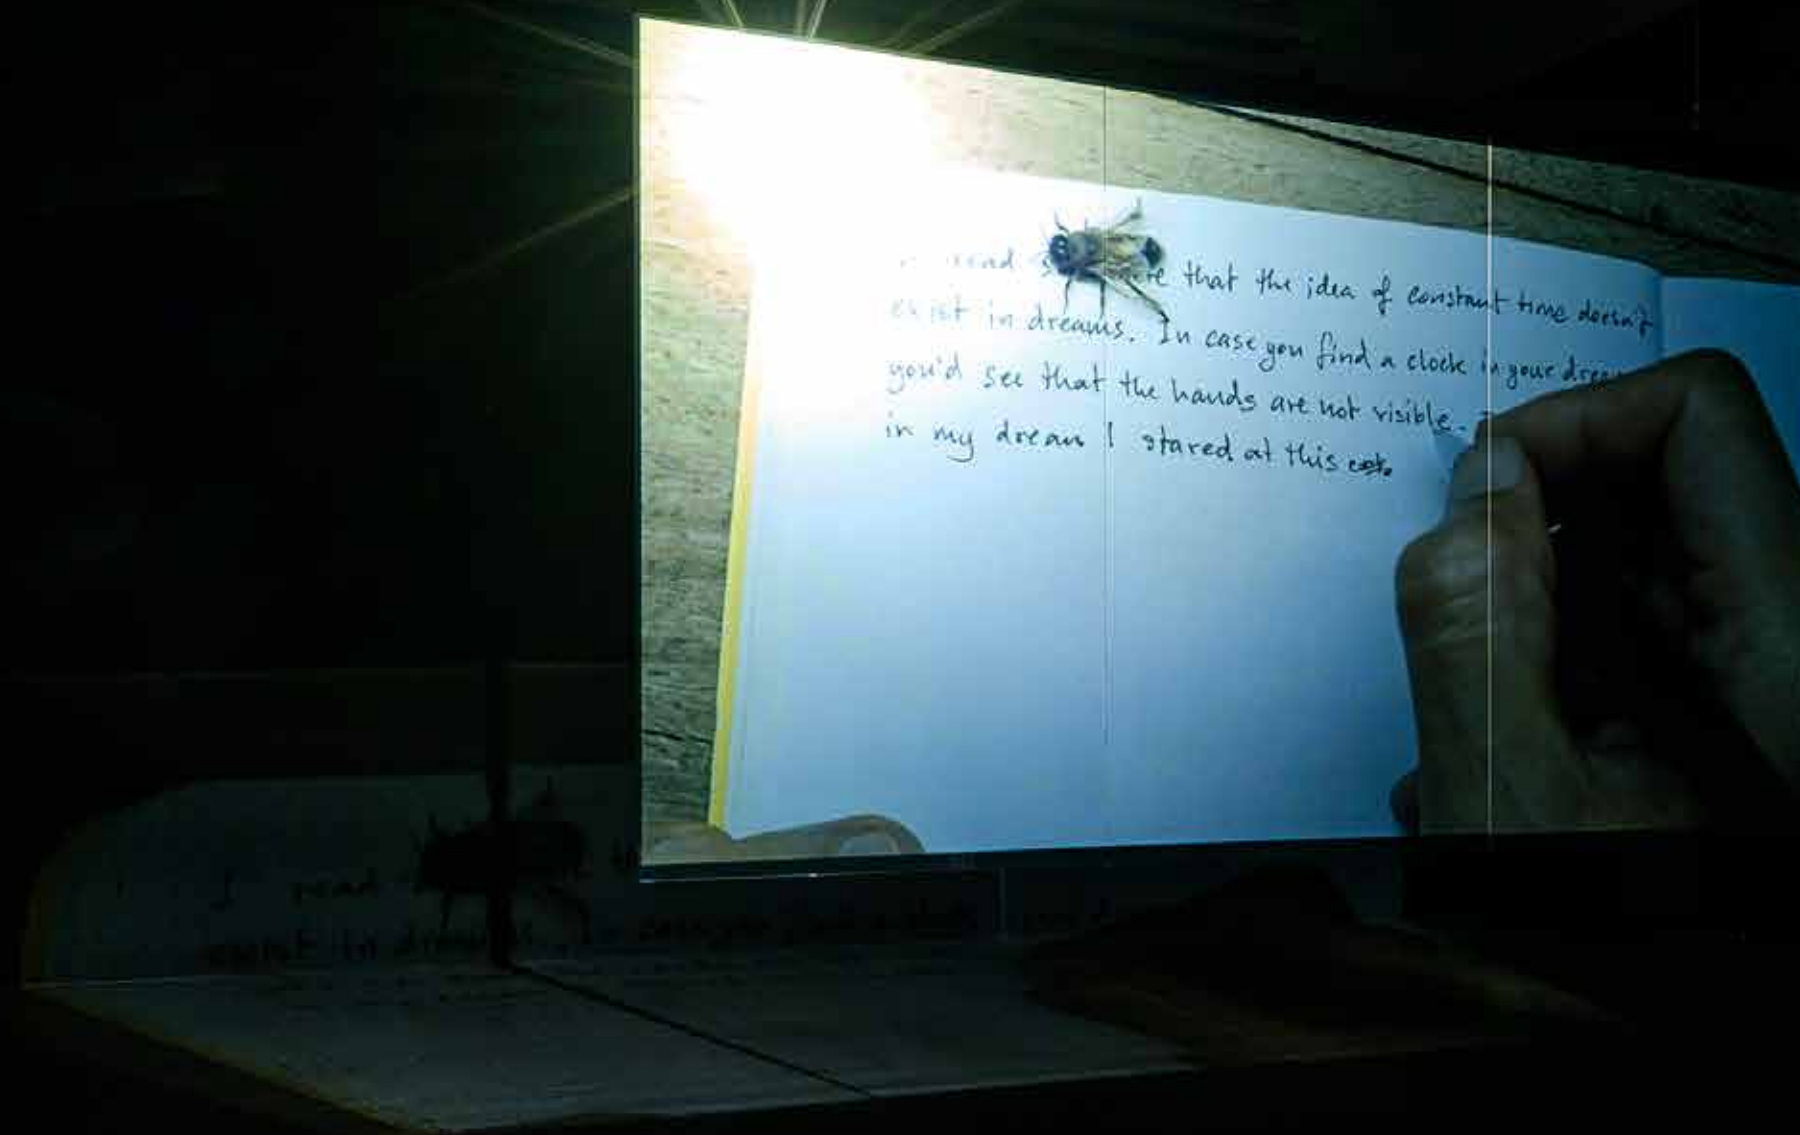 read that the idea of constant time doesn't
exist in dreams. In case you find a clock in your
you'd see that the hands are not visible.
in my dream I stared at this
I read
exist in